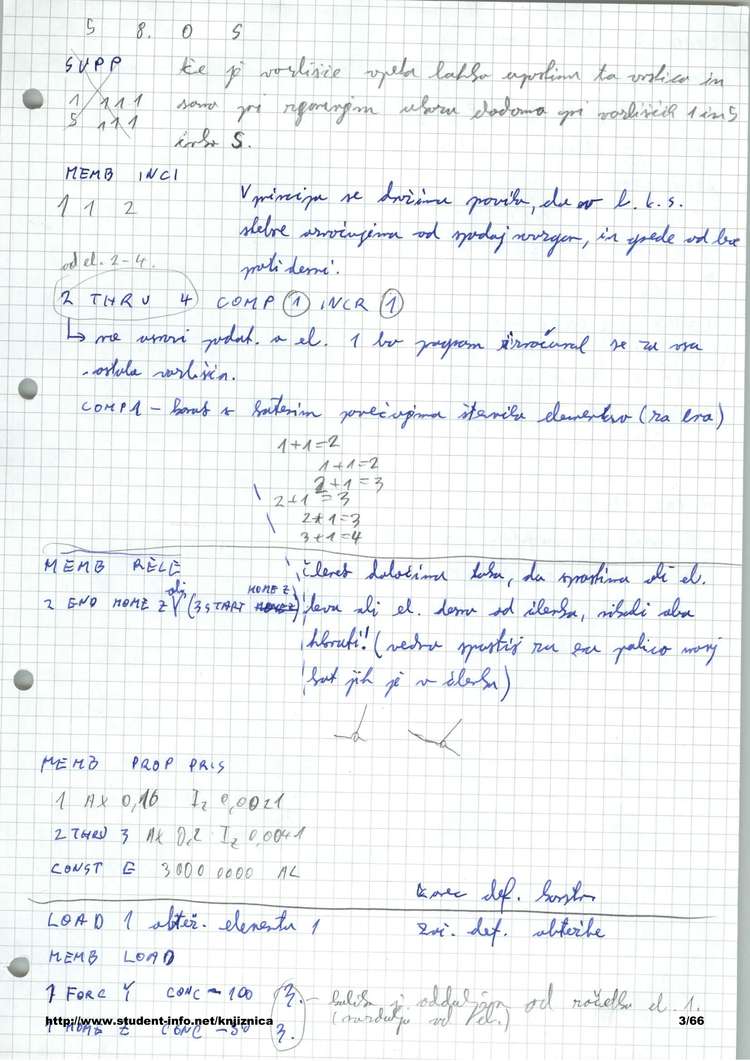 5 8. 0 5
SUPP Če je vozlišče vpeto lahko
1 111 samo pri vozliščih 1 in 5
5 111 5.
MEMB INCI
1 1 2 V principu se držimo pravila, da v k.k.s.
stebre označujemo od spodaj navzgor, in grede od leve
od el. 2-4. proti desni.
2 THRU 4 COMP 1 INCR 1
na osnovi podat. o el. 1 bo program izračunal še za vsa
ostala vozlišča.
COMP 1 – korak s katerim povečujemo število elementov (za ena)
1+1=2
1+1=2
2+1=3
2+1=3
2+1=3
3+1=4
MEMB RELE členek določimo tako, da sprostimo ali el.
2 END MOME Z ali (3 START MOME Z) levo ali el. desno od členka, nikoli oba
hkrati! (vedno sprostiš za eno palico manj
kot jih je v členku)
MEMB PROP PRIS
1 AX 0,16 IZ 0,0021
2 THRU 3 AX 0,2 IZ 0,0041
CONST E 30000000 AL
konec def. konstr.
LOAD 1 obtež. elementa 1 zač. def. obtežbe
MEMB LOAD
1 FORC Y CONC -100 3. – koliko je oddaljena od začetka el. 1.
1 MOME Z CONC -50 3.
http://www.student-info.net/knjiznica 3/66